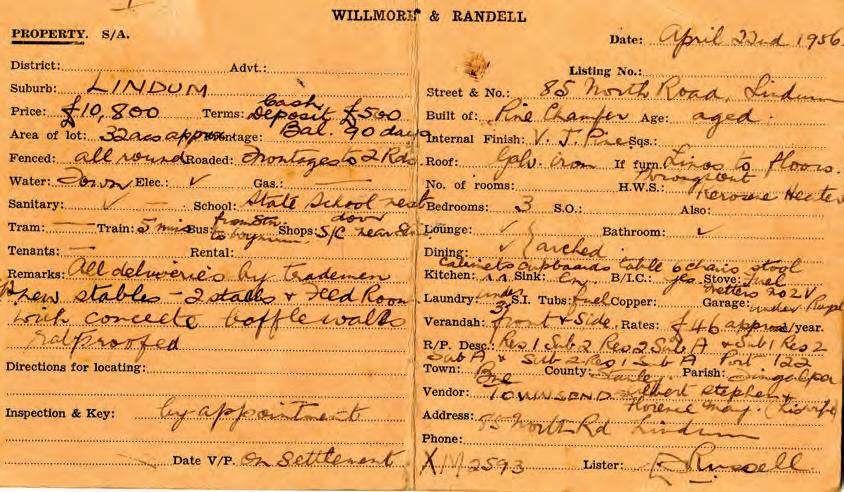 WILLMORE & RANDELL
PROPERTY. S/A.
Date: April 22nd 1956.
District: Advt.:
Listing No.:
Suburb: LINDUM
Street & No.: 85 North Road, Lindum
Price: £10,800 Terms: Cash Deposit £500 Bal. 90 days
Built of: Pine Chamfer Age: aged.
Area of lot: 32acs approx Frontage:
Internal Finish: V.J. Pine Sqs.:
Fenced: all round Roaded: Frontages to 2 Rds
Roof: Galv. iron If furn. Linos to floors. throughout
Water: Town Elec.: ✓ Gas.: —
No. of rooms: H.W.S.: Kerosene Heater
Sanitary: ✓ — School: State School next door
Bedrooms: 3 S.O.: Also:
Tram: — Train: 5 mins Bus: from Stn. to Wynnum Shops: S/C near Stn
Lounge: ✓ Bathroom: ✓
Tenants: — Rental:
Dining: ✓ arched.
Cabinets cupboards table 6 chairs stool
Remarks: All deliveries by trademen
Kitchen: Sink: B/I.C.: yes Stove: fuel
new stables - 2 stalls & Feed Room
Laundry: under S.I. Tubs: Copper: fuel Garage: under
with concrete baffle walls
Verandah: front & Side. Rates: £46 approx/year.
ratproofed
R/P. Desc.: Res 1 Sub 2 Res 2 Sub A & Sub 1 Res 2
Sub A & Sub 2 Res 1 Sub A Port 122
Directions for locating:
Town: Bne County: Stanley Parish: Tingalpa
Vendor: TOWNSEND Gilbert Stephen &
Florence May. (his wife)
Inspection & Key: by appointment
Address: 85 North Rd Lindum
Phone:
Date V/P. On Settlement
XM2593 Lister: Russell